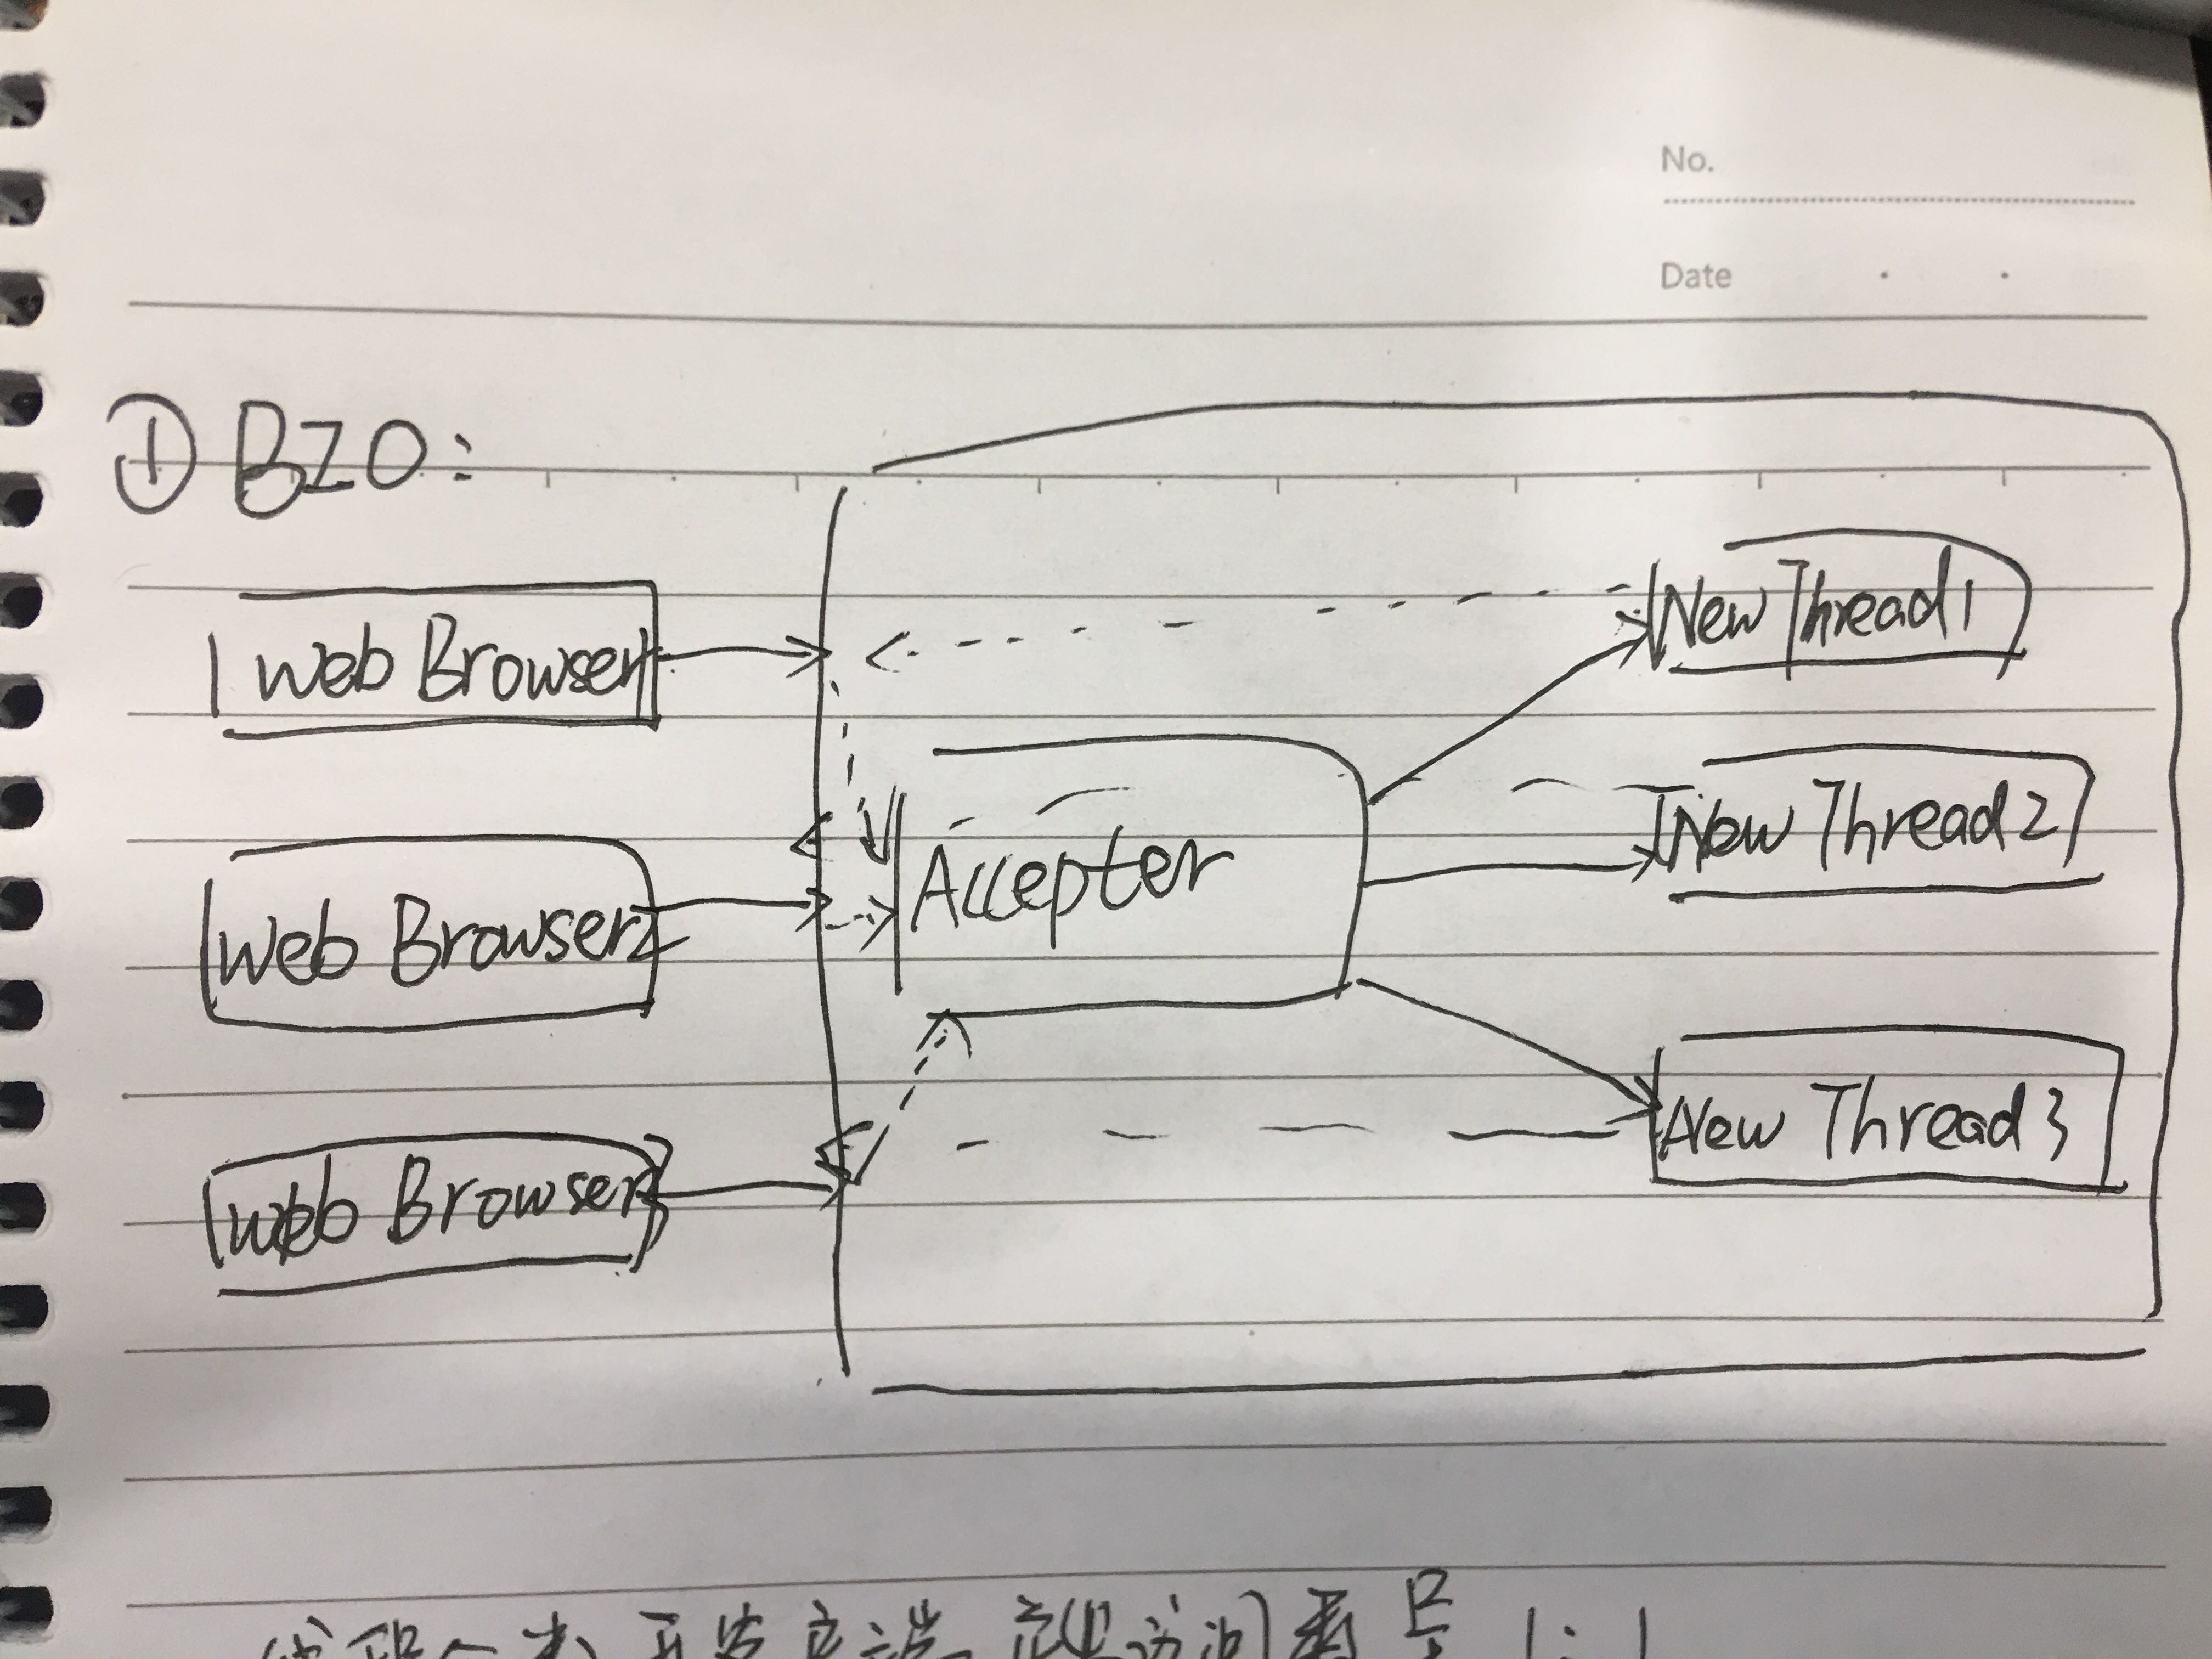 No.
Date
① BIO:
Web Browser1
Web Browser2
Web Browser3
Accepter
New Thread1
New Thread2
New Thread3